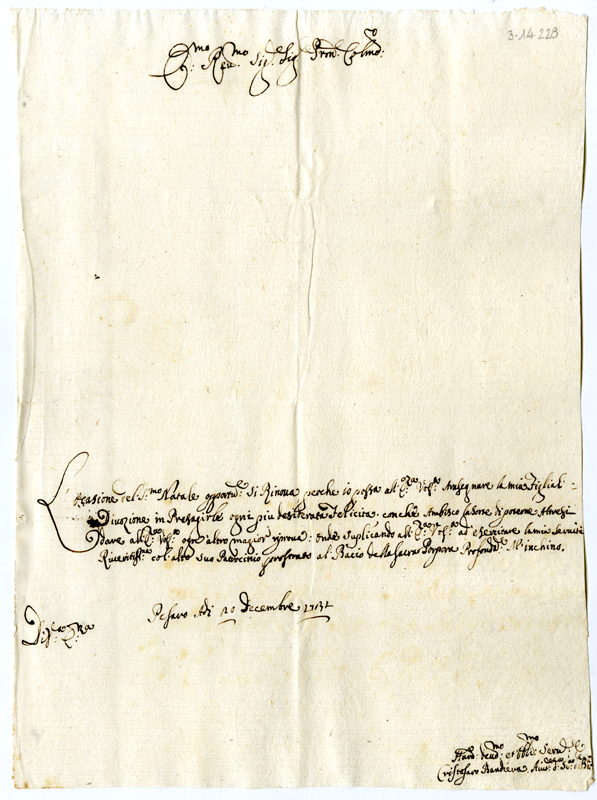 3-14 228
E.mo Reu.mo Sig.r Sig Pron Colmo:
L'ocasione del S.mo Natale opportu: Si Rinoua perche io possa all' E.za V.ra Assegnare la mia Figlial:
Diuozione in Presagirle ogni più desiderata Felicità con che Ambisco l'onore di poterne Altresi
dare all' E.za V.ra ogni altro magior riproua: onde Suplicando all' E.za V.ra ad esercitare la mia Seruitù
Riueritiss.ma col alto suo Patrocinio prostrato al Bacio della Sacra Porpora Profond.te M'inchino.
Pesaro Adi 20 Decembre 1731
Di V.ra E.za
Hum: deuo.mo et obli.mo Seru.
Cristofaro Bandiera